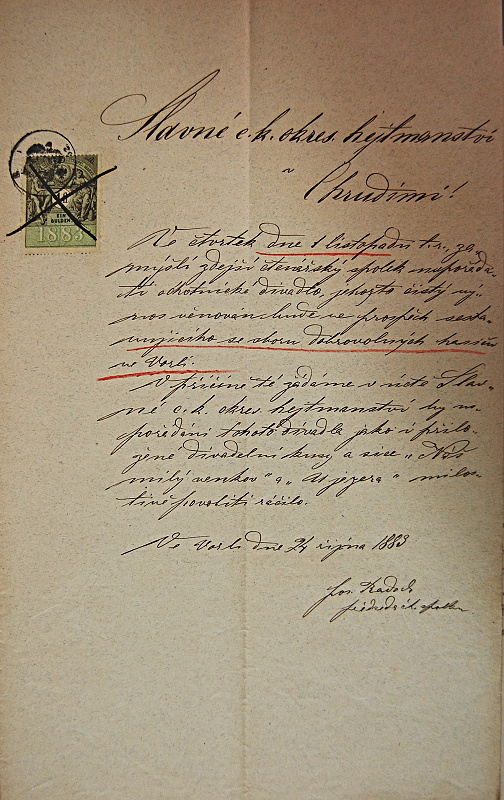 Slavné c. k. okres. hejtmanství
v
Chrudimi!
EIN
GULDEN
1883
Ve čtvrtek dne 1 listopadu t. r., za,
mýšlí zdejší čtenářský spolek uspořáda,
ti ochotnické divadlo, jehožto čistý vý,
nos věnován bude ve prospěch sesta,
vujícího se sboru dobrovolných hasičů
ve Vorli.
V příčině té žádáme v úctě Slav,
né c. k. okres. hejtmanství by us,
pořádání tohoto divadla jako i přilo,
žené divadelní kusy a sice „Náš
milý venkov" a „U jezera" milos,
tivě povoliti ráčilo.
Ve Vorli dne 24 října 1883
Jos. Kadoch
předseda čt. spolku